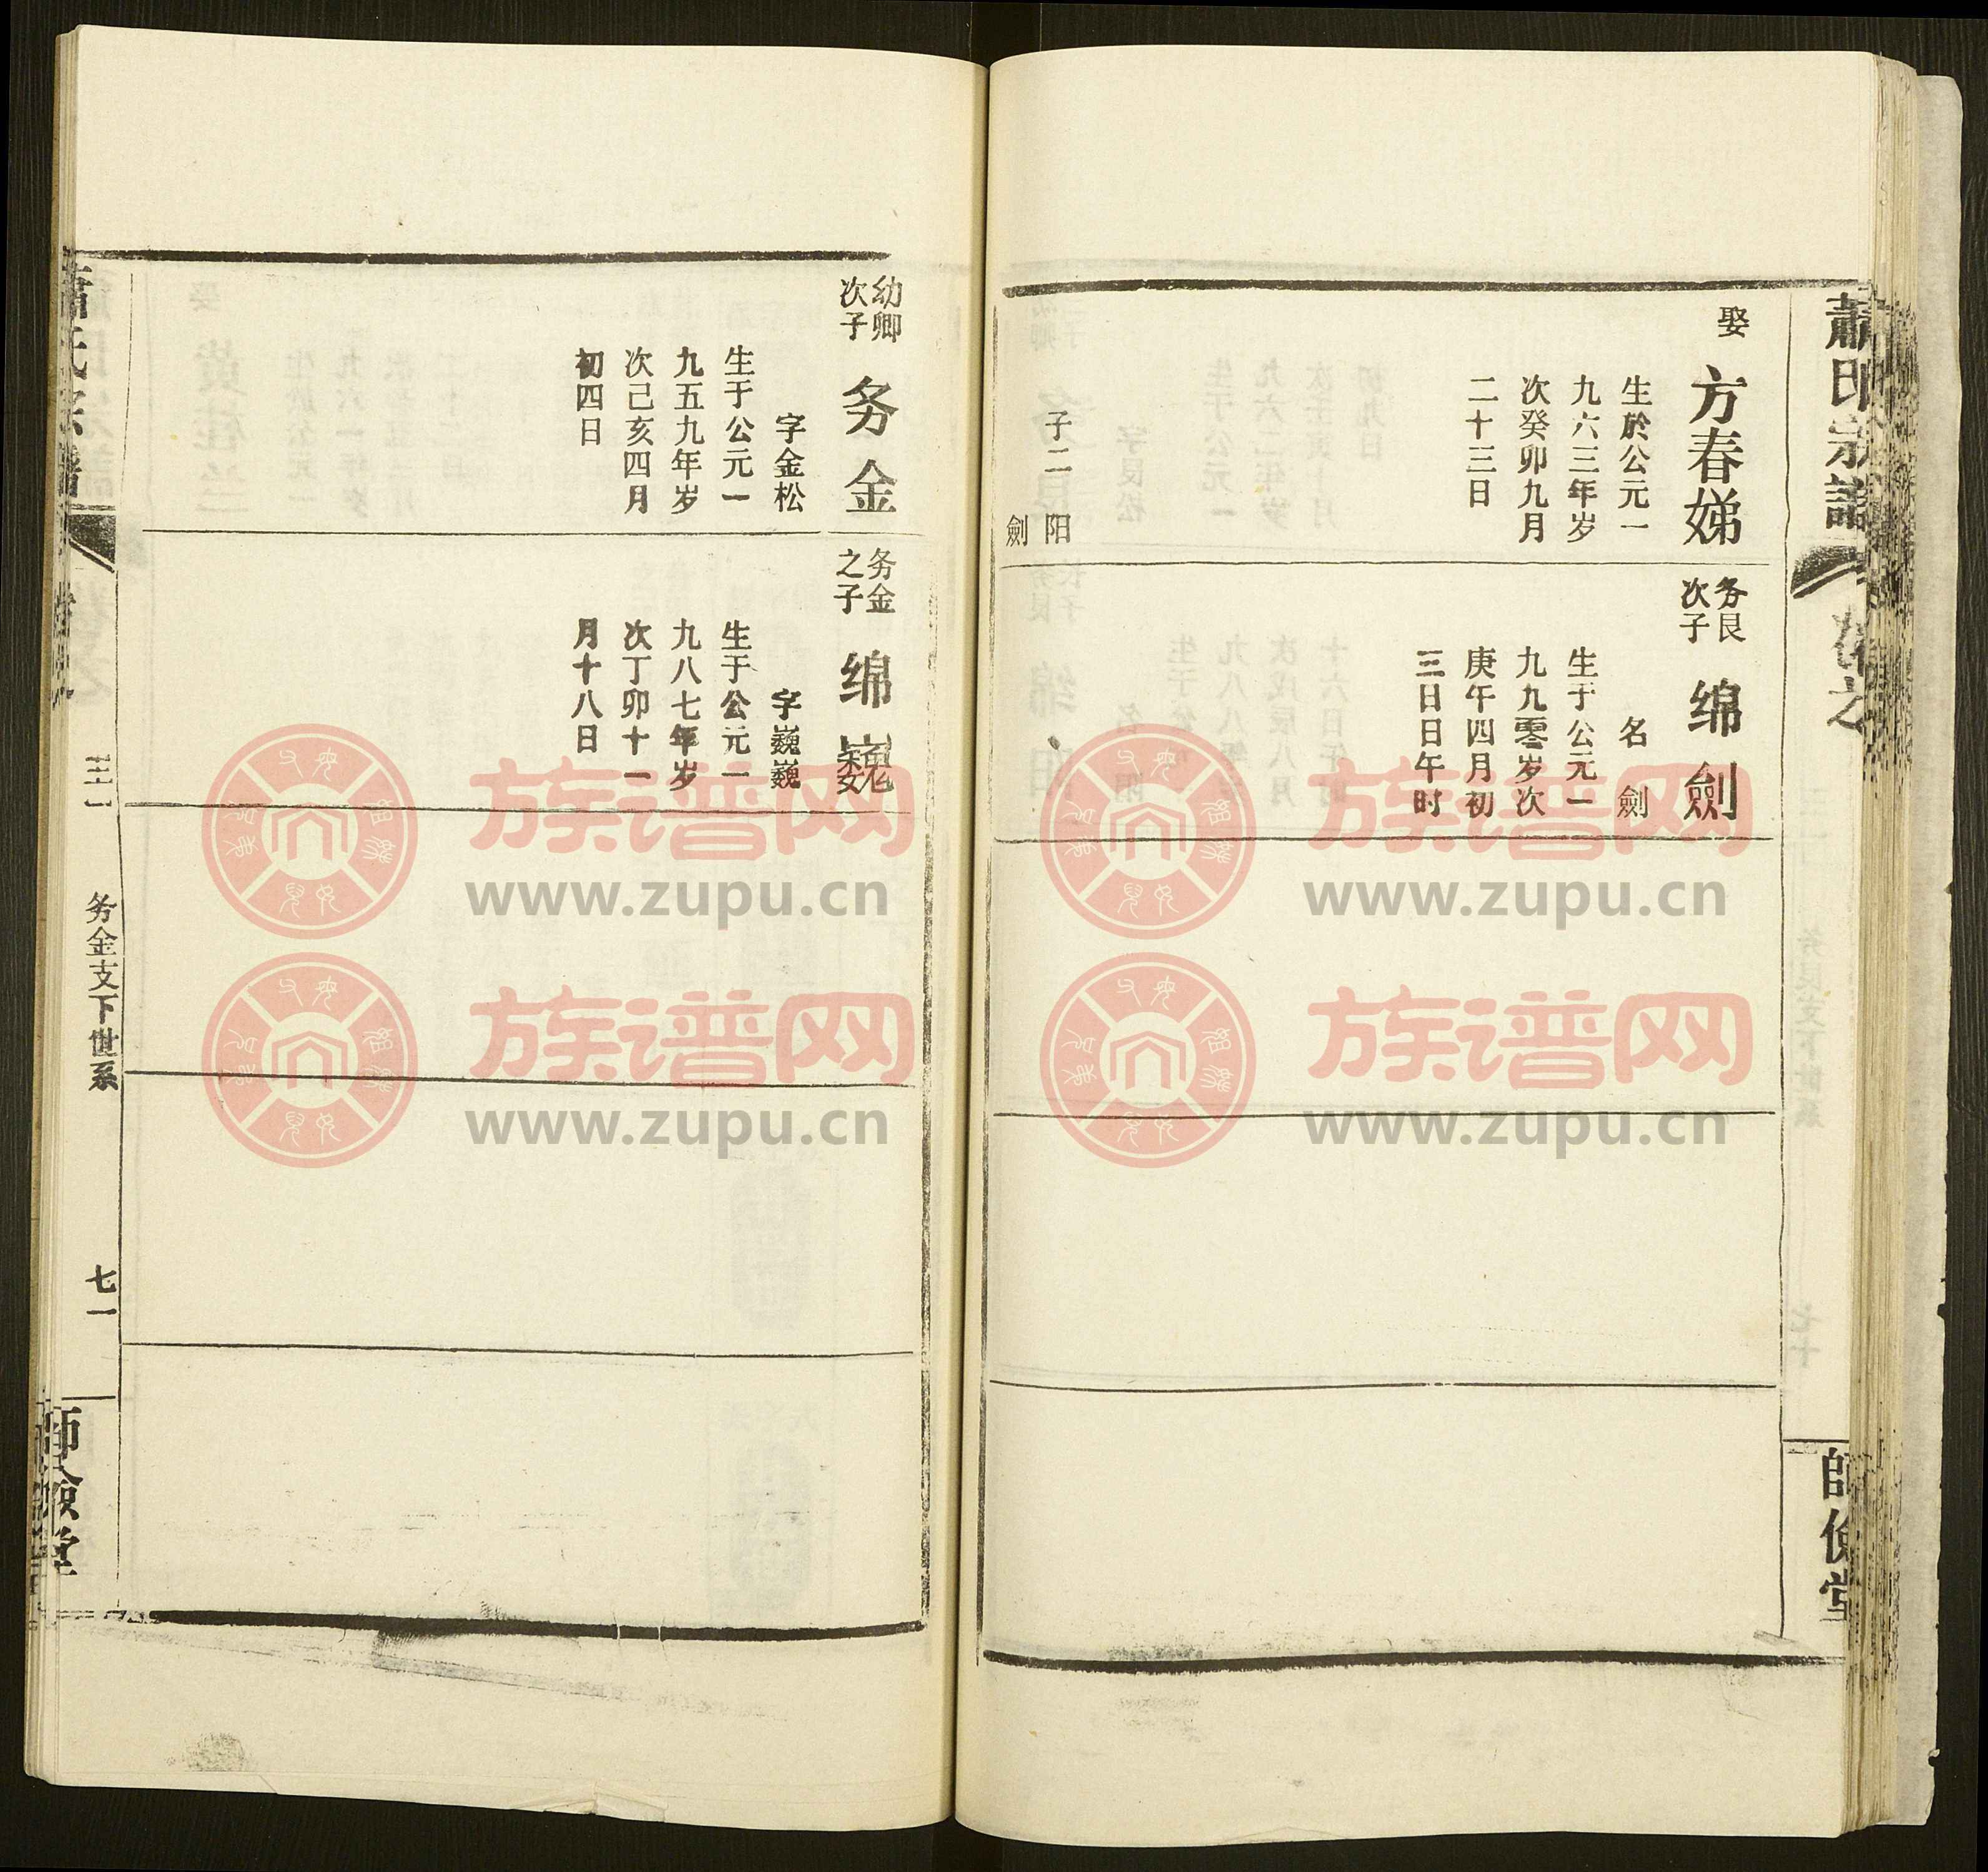 蕭氏宗譜
卷之
師儉堂
娶
方春娣
生於公元一
九六三年岁
次癸卯九月
二十三日
子二
阳
劍
务良
次子
绵劍
名劍
生于公元一
九九零岁次
庚午四月初
三日日午时
幼卿
次子
务金
字金松
生于公元一
九五九年岁
次己亥四月
初四日
务金
之子
绵巍
字巍巍
生于公元一
九八七年岁
次丁卯十一
月十八日
务金支下世系
七一
族谱网
www.zupu.cn
族谱网
www.zupu.cn
族谱网
www.zupu.cn
族谱网
www.zupu.cn